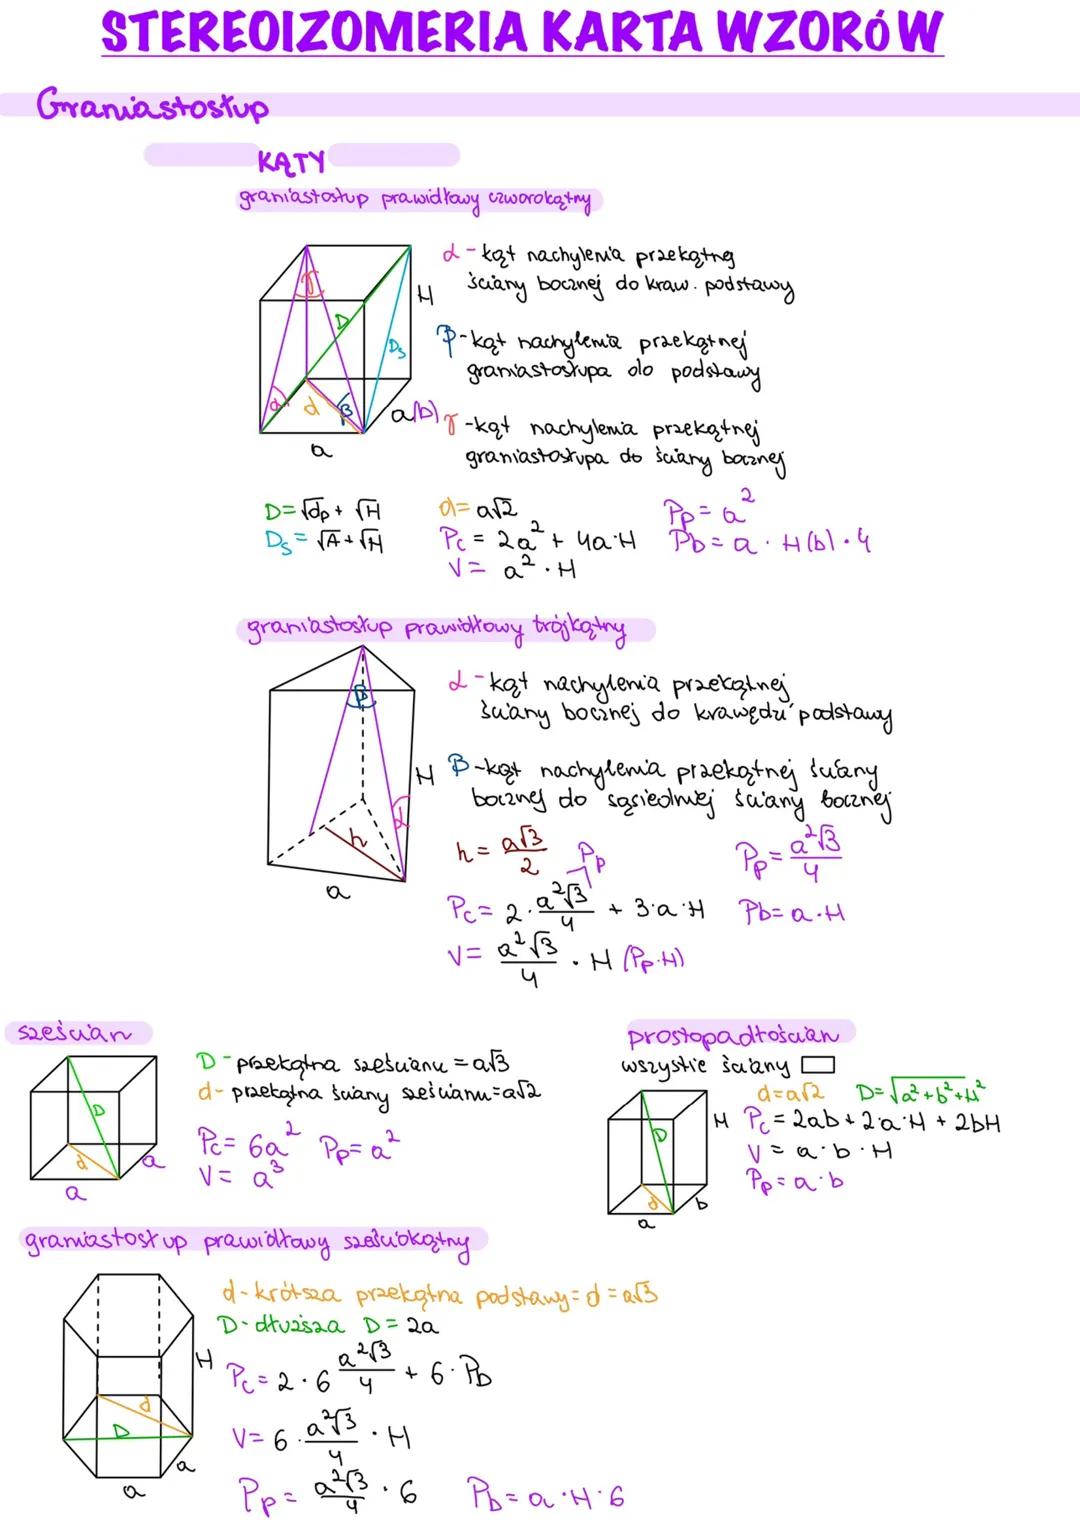 STEREOIZOMERIA KARTA WZORÓW
Graniastosłup
KĄTY
graniastosłup prawidłowy czworokątny
α - kąt nachylenia przekątnej
ściany bocznej do kraw. podstawy
H
D
Ds
β - kąt nachylenia przekątnej
graniastosłupa do podstawy
γ
α
d
β
a(b)
a
γ - kąt nachylenia przekątnej
graniastosłupa do ściany bocznej
D = √dp + √H
d = a√2
Pp = a²
Ds = √A + √H
Pc = 2a² + 4a·H
Pb = a · H(b) · 4
V = a² · H
graniastosłup prawidłowy trójkątny
α - kąt nachylenia przekątnej
ściany bocznej do krawędzi podstawy
β
H
β - kąt nachylenia przekątnej ściany
bocznej do sąsiedniej ściany bocznej
α
h
a
h = a√3/2
Pp
Pp = a²√3/4
Pc = 2·a²√3/4 + 3·a·H
Pb = a·H
V = a²√3/4 · H (Pp·H)
sześcian
D - przekątna sześcianu = a√3
d - przekątna ściany sześcianu = a√2
Pc = 6a² Pp = a²
V = a³
D
d
a
a
prostopadłościan
wszystie ściany
d = a√2 D = √a²+b²+H²
H
Pc = 2ab + 2·a·H + 2bH
V = a·b·H
Pp = a·b
D
d
b
a
graniastosłup prawidłowy sześciokątny
d - krótsza przekątna podstawy = d = a√3
D - dłuższa D = 2a
H
Pc = 2·6 a²√3/4 + 6·Pb
V = 6·a²√3/4 · H
Pp = a²√3/4 · 6
Pb = a·H·6
d
D
a
a